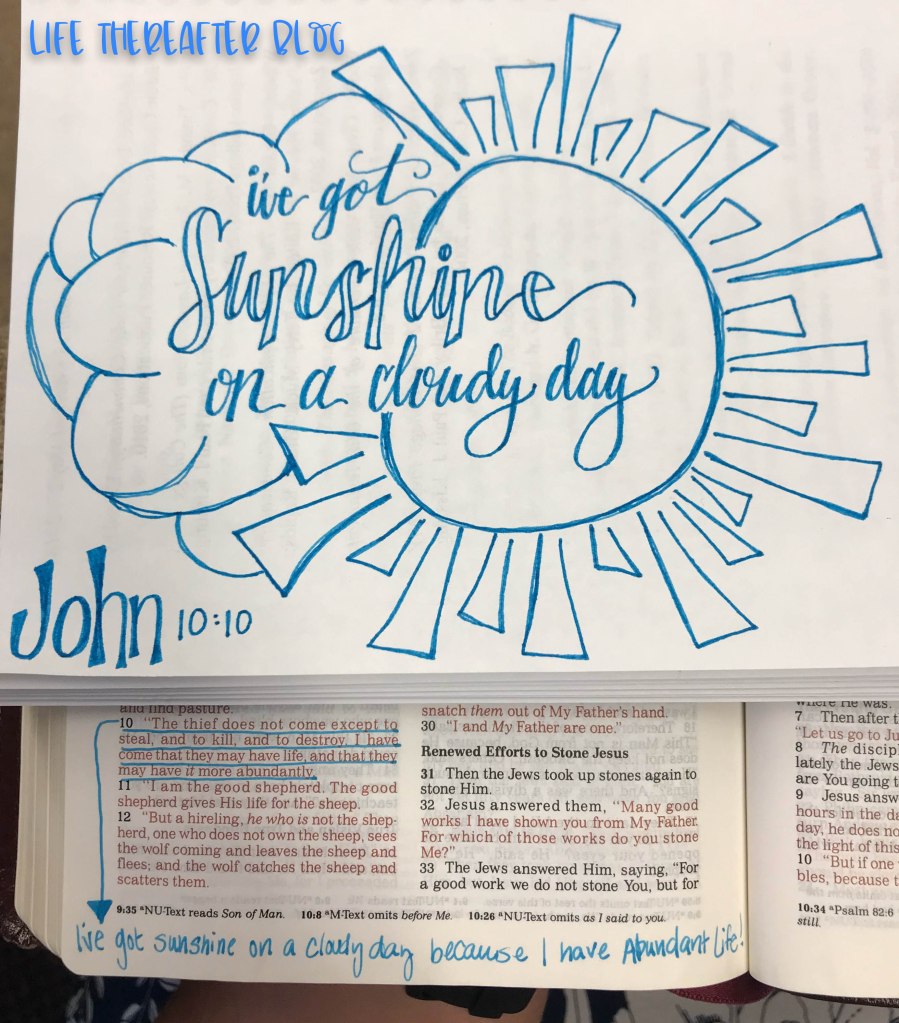 LIFE THEREAFTER BLOG
i've got
Sunshine
on a cloudy day
John 10:10
and find pasture.
10 "The thief does not come except to
steal, and to kill, and to destroy. I have
come that they may have life, and that they
may have it more abundantly.
11 "I am the good shepherd. The good
shepherd gives His life for the sheep.
12 "But a hireling, he who is not the shep-
herd, one who does not own the sheep, sees
the wolf coming and leaves the sheep and
flees; and the wolf catches the sheep and
scatters them.
snatch them out of My Father's hand.
30 "I and My Father are one."
Renewed Efforts to Stone Jesus
31 Then the Jews took up stones again to
stone Him.
32 Jesus answered them, "Many good
works I have shown you from My Father.
For which of those works do you stone
Me?"
33 The Jews answered Him, saying, "For
a good work we do not stone You, but for
9:35 ªNU-Text reads Son of Man. 10:8 ªM-Text omits before Me. 10:26 ªNU-Text omits as I said to you.
I've got sunshine on a cloudy day because I have Abundant Life!
where He was.
7 Then after t
"Let us go to Ju
8 The discip
lately the Jews
are You going t
9 Jesus answ
hours in the da
day, he does no
the light of this
10 "But if one
bles, because t
10:34 ªPsalm 82:6
still.